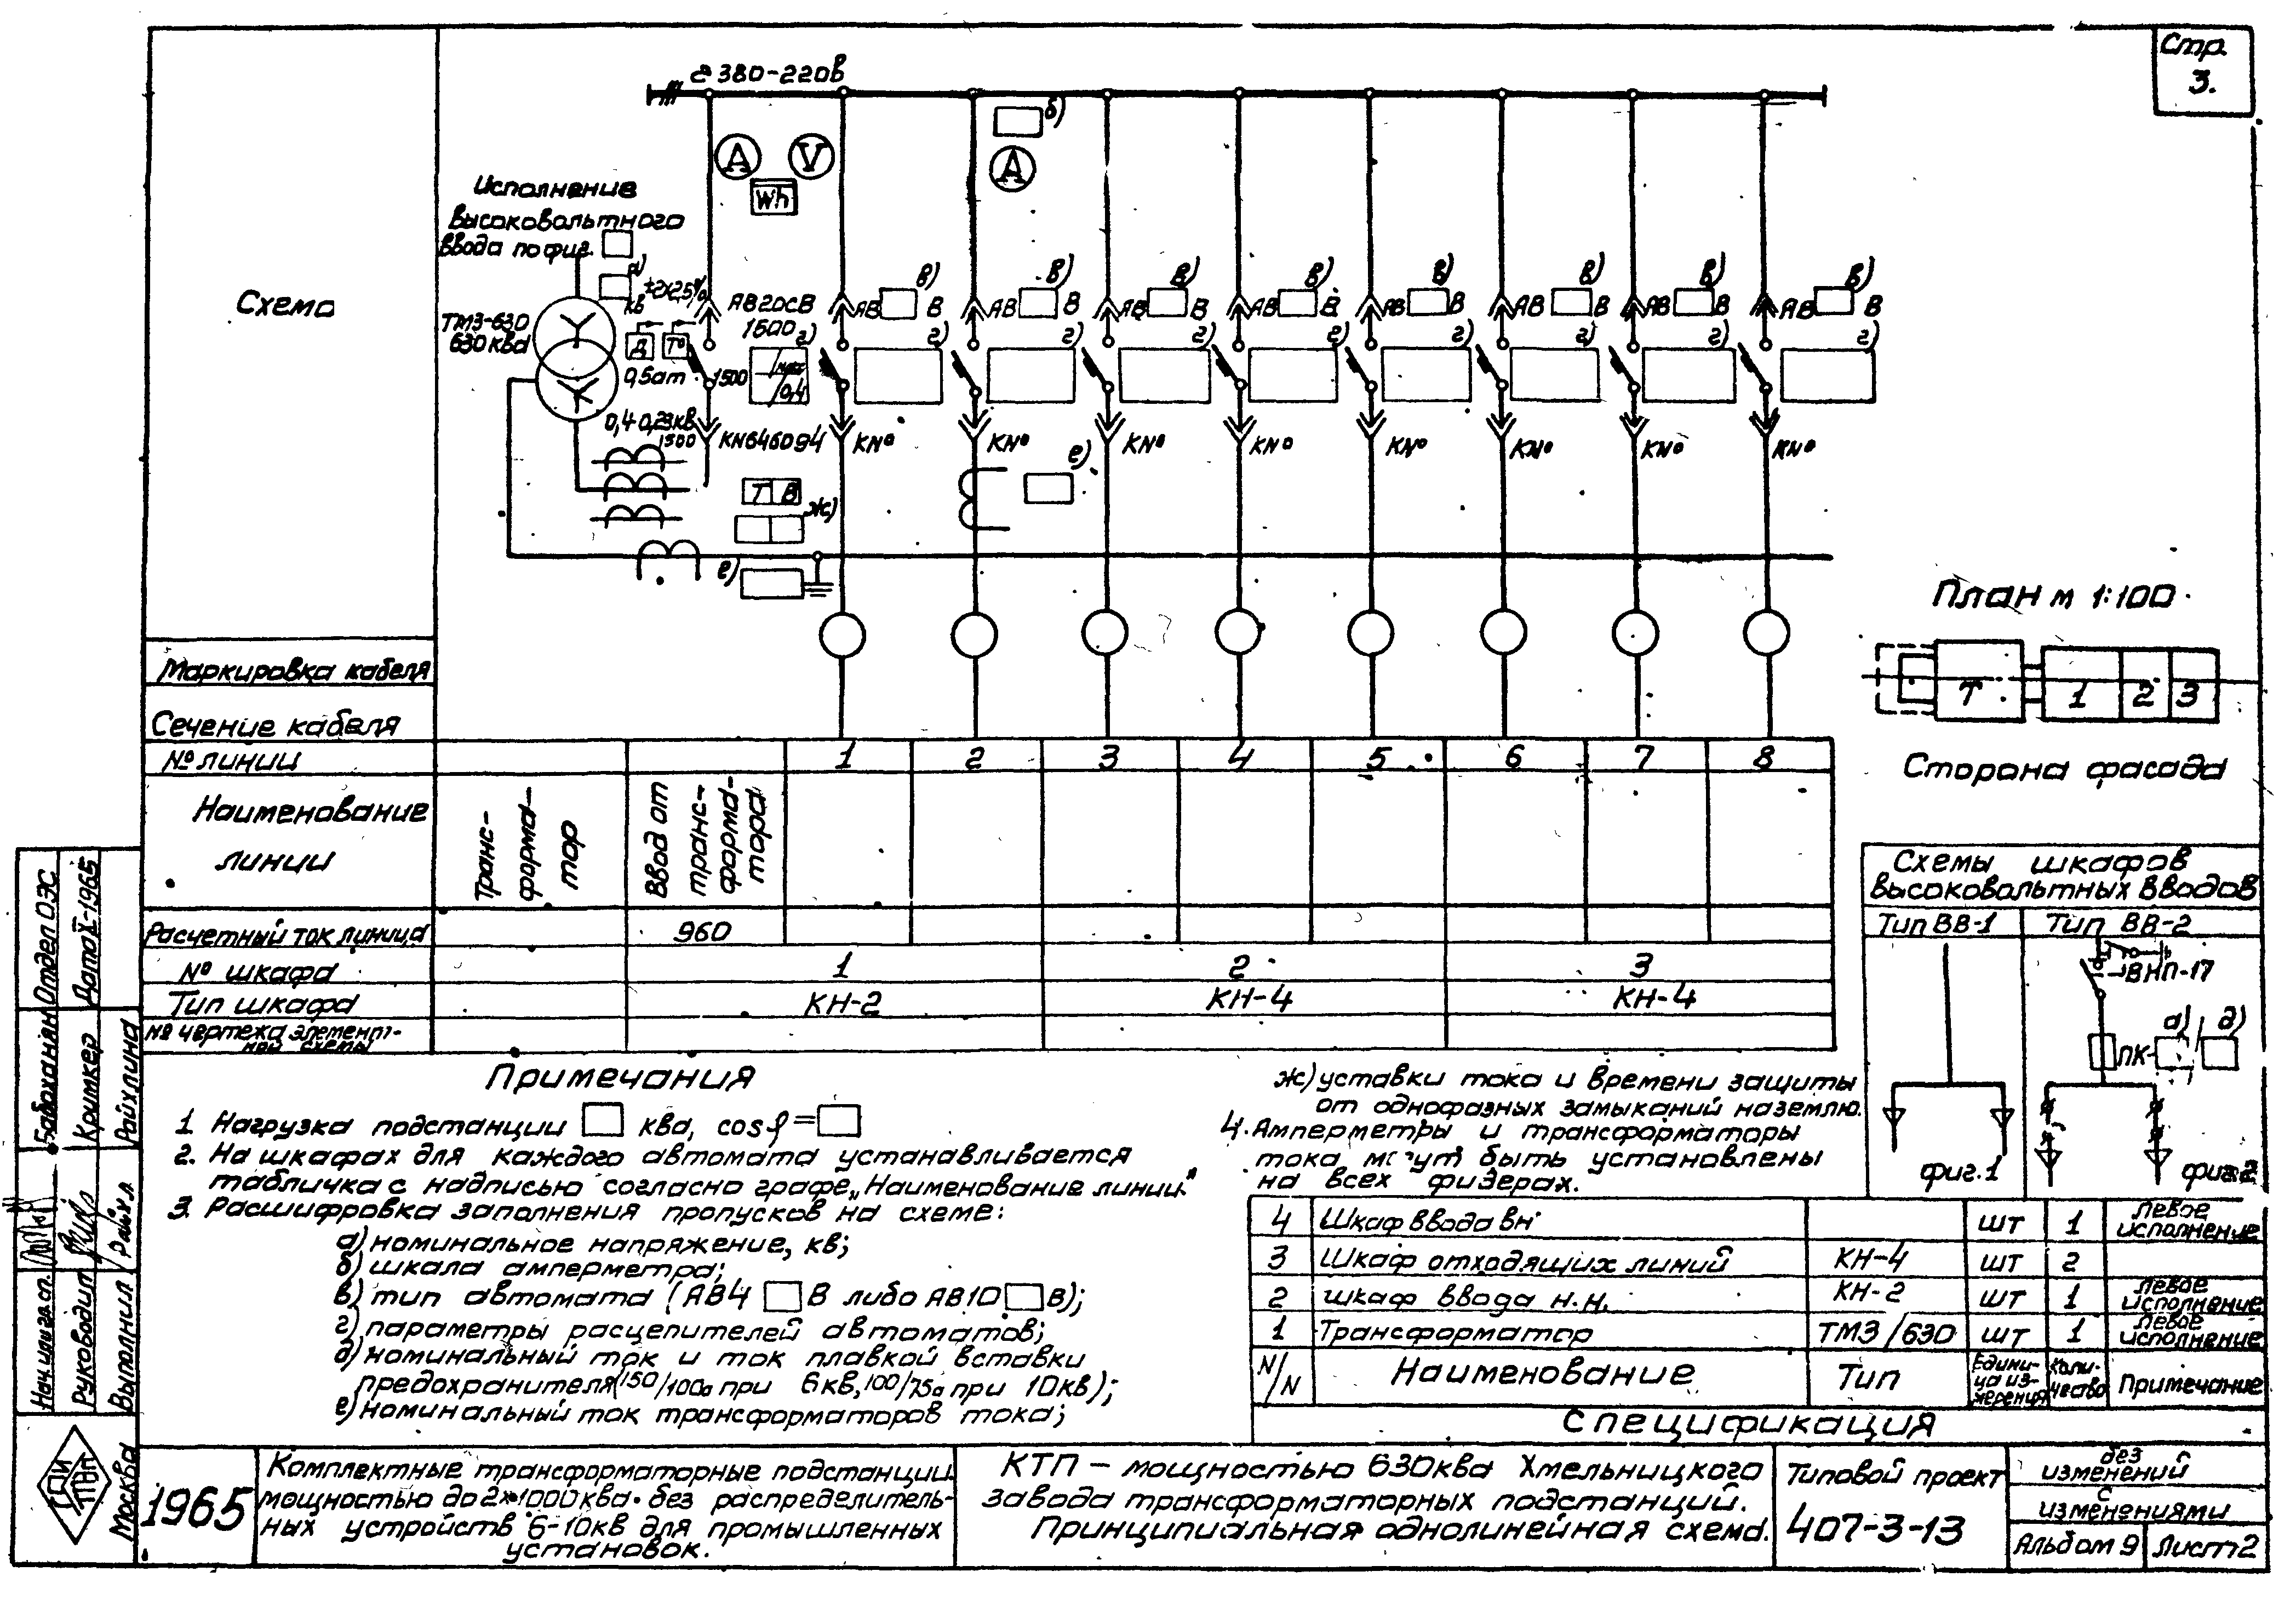 Стр.
3.
Схема
~380-220в
А
V
Wh
б)
А
Исполнение
высоковольтного
ввода по фиг.
а)
кв
±2×2,5%
ТМЗ-630
630 ква
Д
Т°
0,5ат
1500
АВ20СВ
1500
г)
0,4
0,4-0,23кв
1500
KN646094
Т В
ж)
е)
е)
АВ В в) г) KN°
АВ В в) г) KN°
АВ В в) г) KN°
АВ В в) г) KN°
АВ В в) г) KN°
АВ В в) г) KN°
АВ В в) г) KN°
АВ В в) г) KN°
Маркировка кабеля
Сечение кабеля
№ линии 1 2 3 4 5 6 7 8
Наименование
линии
Транс-
форма-
тор
Ввод от
транс-
форма-
тора
Расчетный ток линии 960
№ шкафа 1 2 3
Тип шкафа КН-2 КН-4 КН-4
№ чертежа элемент-
ной схемы
План м 1:100
Т 1 2 3
Сторона фасада
Схемы шкафов
высоковольтных вводов
Тип ВВ-1 Тип ВВ-2
ВНП-17
а) д)
ПК-
фиг.1 фиг.2
Примечания
1. Нагрузка подстанции ква, cos φ=
2. На шкафах для каждого автомата устанавливается
табличка с надписью согласно графе „Наименование линии."
3. Расшифровка заполнения пропусков на схеме:
а) номинальное напряжение, кв;
б) шкала амперметра;
в) тип автомата (АВ4 В либо АВ10 В);
г) параметры расцепителей автоматов;
д) номинальный ток и ток плавкой вставки
предохранителя (150/100а при 6кв, 100/75а при 10кв);
е) номинальный ток трансформаторов тока;
ж) уставки тока и времени защиты
от однофазных замыканий на землю.
4. Амперметры и трансформаторы
тока могут быть установлены
на всех фидерах.
4 Шкаф ввода вн шт 1 левое исполнение
3 Шкаф отходящих линий КН-4 шт 2
2 шкаф ввода н.н. КН-2 шт 1 левое исполнение
1 Трансформатор ТМЗ/630 шт 1 левое исполнение
N/N Наименование Тип Едини-ца из-мерения Коли-чество Примечание
Спецификация
Отдел ОЭС
Дата X-1965
Бабаханян
Кримкер
Райхлина
Нач.
Руководил
Выполнил
Москва
1965
Комплектные трансформаторные подстанции
мощностью до 2×1000ква без распределитель-
ных устройств 6-10кв для промышленных
установок.
КТП – мощностью 630ква Хмельницкого
завода трансформаторных подстанций.
Принципиальная однолинейная схема.
Типовой проект
407-3-13
без
изменений
с
изменениями
Альбом 9 Лист 2